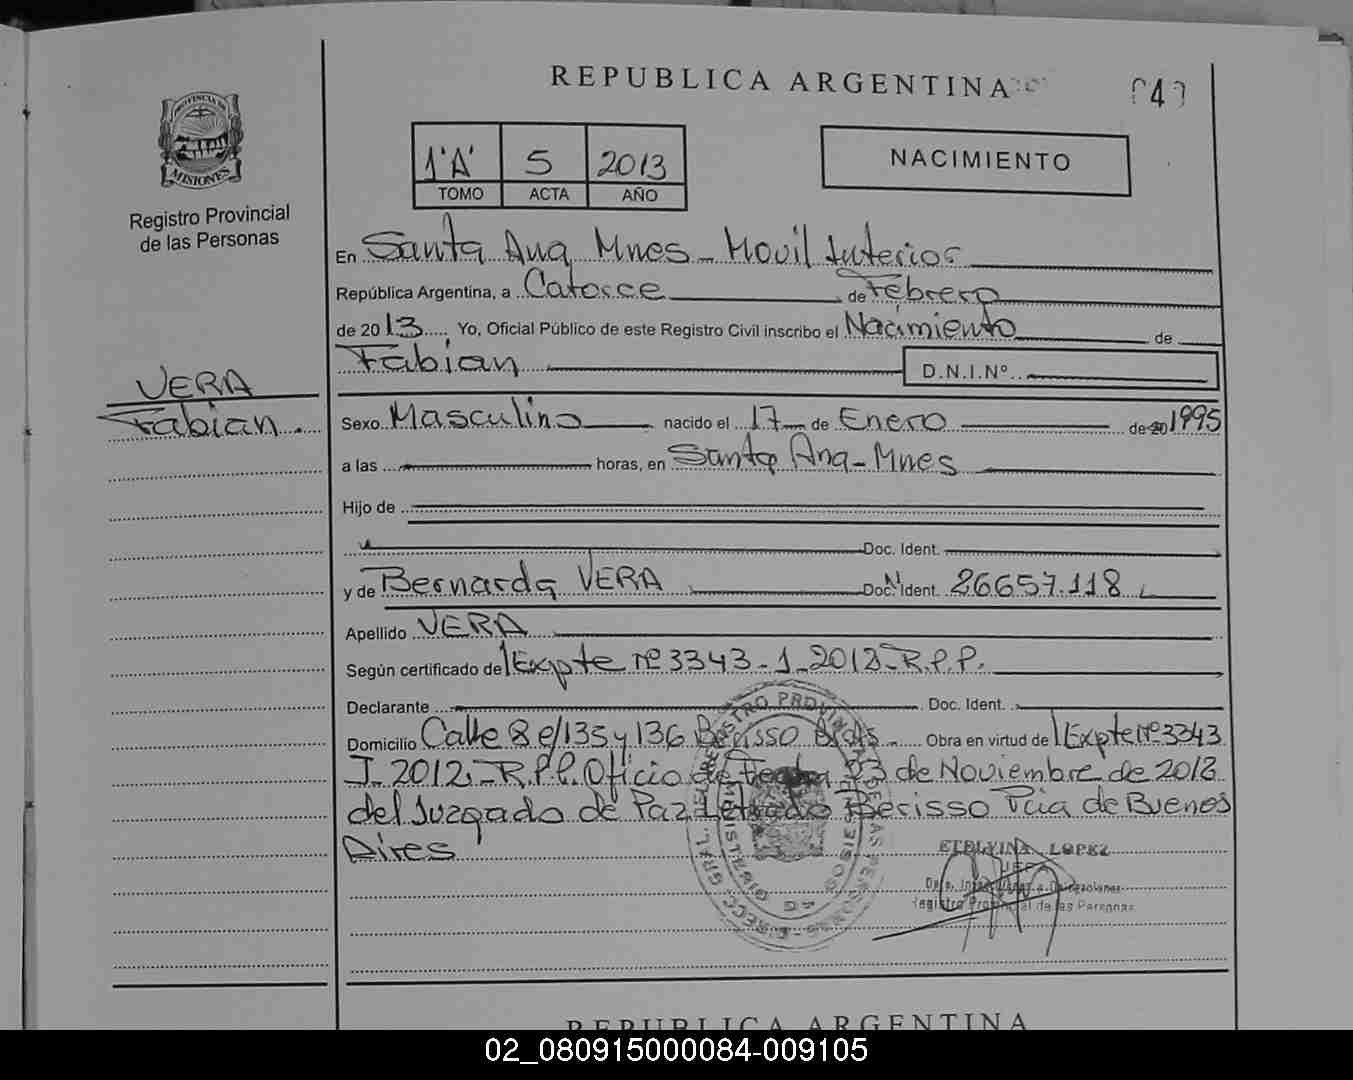 REPUBLICA ARGENTINA
PROVINCIA DE
MISIONES
Registro Provincial
de las Personas
1 "A" 5 2013
TOMO ACTA AÑO
NACIMIENTO
En Santa Ana Mnes - Movil Interior
República Argentina, a Catorce de Febrero
de 2013 Yo, Oficial Público de este Registro Civil inscribo el Nacimiento de
Fabian D.N.I.Nº
VERA
Fabian.
Sexo Masculino nacido el 17 de Enero de 20 1995
a las horas, en Santa Ana - Mnes
Hijo de
Doc. Ident.
y de Bernarda VERA Doc. Ident. 26657.118
Apellido VERA
Según certificado de Expte Nº 3343-1-2012-R.P.P.
Declarante Doc. Ident.
Domicilio Calle 8 e/135 y 136 Berisso Obra en virtud de Expte Nº 3343
2012-R.P.P. Oficio de Fecha 23 de Noviembre de 2012
del Juzgado de Paz Letrado Berisso Pcia de Buenos
Aires
LOPEZ
Registro Provincial de las Personas
REPUBLICA ARGENTINA
02_080915000084-009105